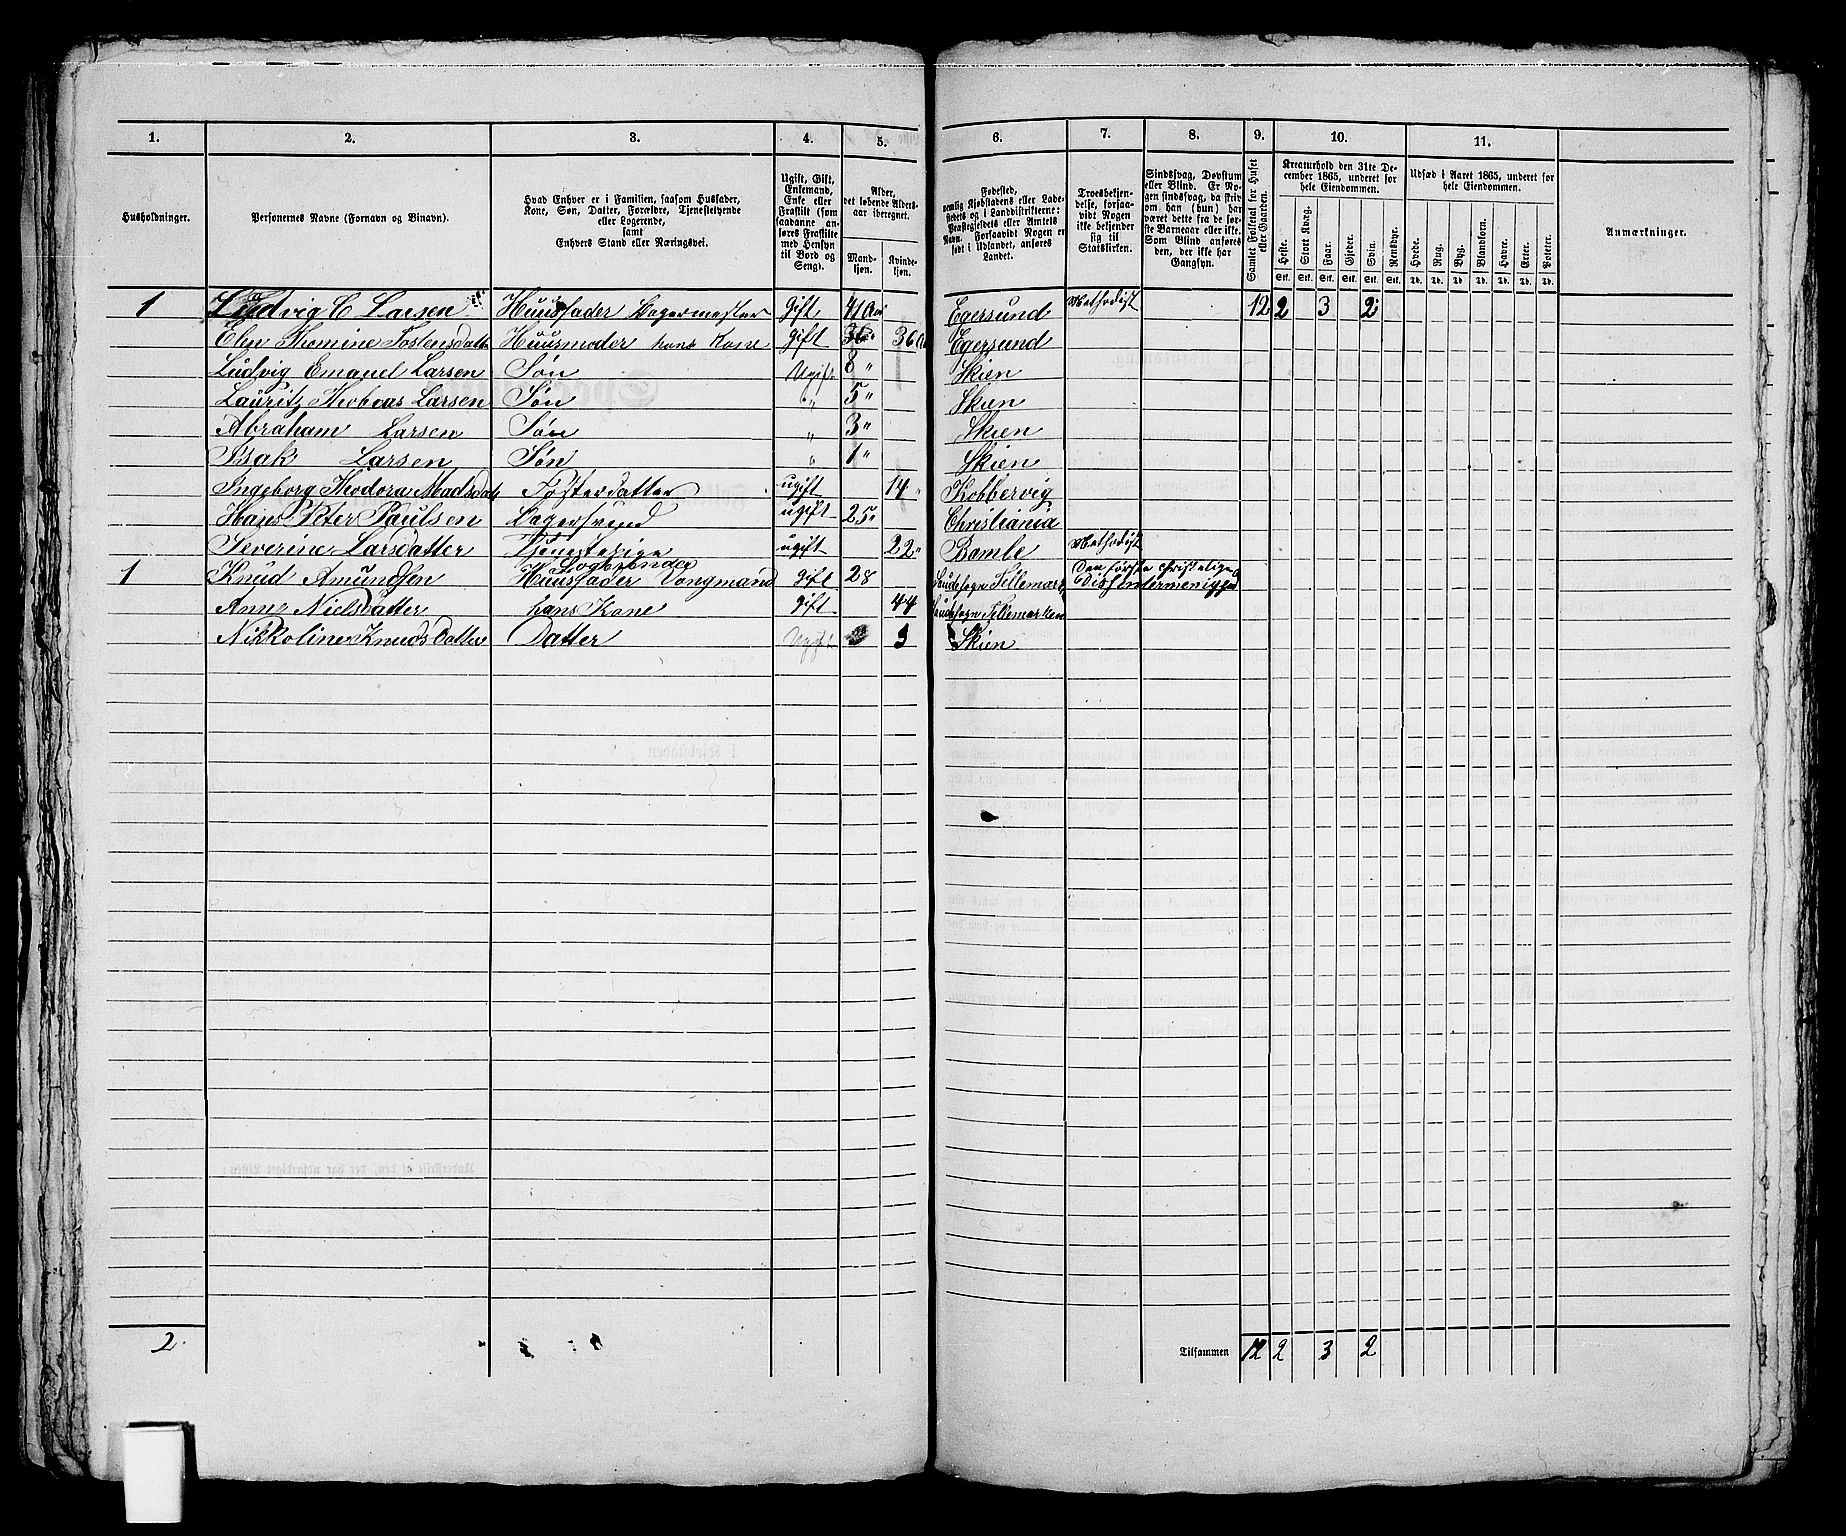 1. 2. 3. 4. 5. 6. 7. 8. 9. 10. 11.
Husholdninger.
Personernes Navne (Fornavn og Binavn).
Hvad Enhver er i Familien, saasom Husfader,
Kone, Søn, Datter, Forældre, Tjenestetyende
eller Logerende,
samt
Enhvers Stand eller Næringsvei.
Ugift, Gift,
Enkemand,
Enke eller
Fraskilt (som
saadanne an-
føres Fraskilte
med Hensyn
til Bord og
Seng).
Alder,
det løbende Alders-
aar iberegnet.
Mand-
kjøn.
Kvinde-
kjøn.
Fødested,
nemlig Kjøbstadens eller Lade-
stedets og i Landdistrikterne:
Præstegjeldets eller Amtets
Navn. Forsaavidt Nogen er
født i Udlandet, anføres
Landet.
Troesbekjen-
delse, forsaa-
vidt Nogen
ikke bekjender
sig til
Statskirken.
Sindssvag, Døvstum
eller Blind. Er No-
gen sindssvag, da skriv
om han (hun) har
været dette fra de før-
ste Barneaar eller ikke.
Som Blind anføres
den, der ikke har
Gangsyn.
Samlet Folketal for Huset
eller Gaarden.
Kreaturhold den 31te De-
cember 1865, underet for
hele Eiendommen.
Heste. Stort Kvæg. Faar. Gjeder. Svin. Rensdyr.
Stk. Stk. Stk. Stk. Stk. Stk.
Udsæd i Aaret 1865, underet for
hele Eiendommen.
Hvede. Rug. Byg. Blandkorn. Havre. Erter. Poteter.
Td. Td. Td. Td. Td. Td. Td.
Anmærkninger.
1 Ludvig C Larsen Huusfader Bagermester Gift 41 Aar Egersund Methodist 12 2 3 2
Elen Thomine Tostensdatter Huusmoder hans Kone gift 36 36 Egersund
Ludvig Emanuel Larsen Søn Ugift 8 " Skien
Lauritz Thobias Larsen Søn " 5 " Skien
Abraham Larsen Søn " 3 " Skien
Isak Larsen Søn " 1 " Skien
Ingeborg Theodora Madsdatt Fosterdatter ugift 14 " Kobbervig
Hans Peter Paulsen Bagersvend ugift 25 " Christiania
Severine Larsdatter Tjenestepige ugift 22 " Bamle Methodist
Logerende
1 Knud Amundsen Huusfader Vongmand Gift 28 Saudesogn Tellemarken Den første christelige Dissentermenighed
Anne Nielsdatter hans Kone Gift 44 Tellemarken
Nikkoline Knudsdatter Datter Ugift 3 Skien
2
Tilsammen 12 2 3 2